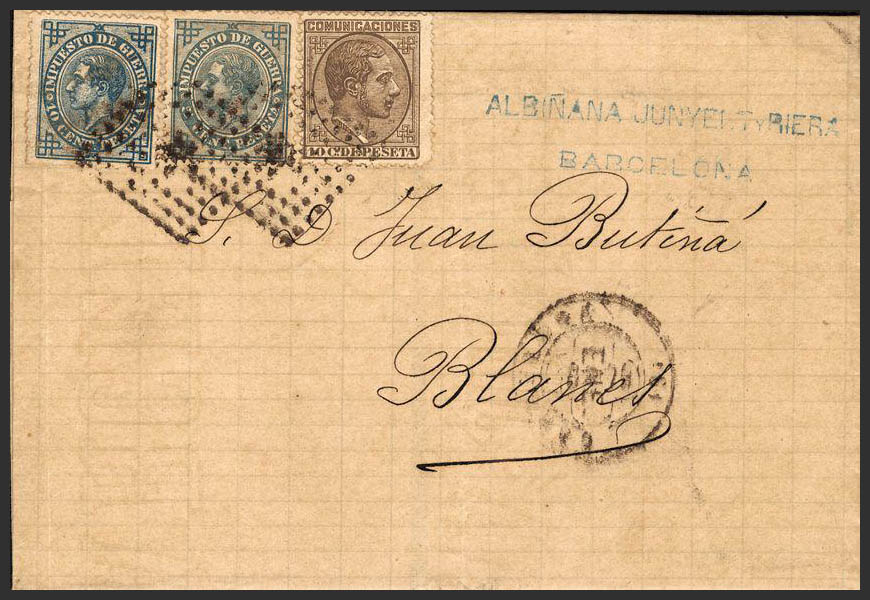 IMPUESTO DE GUERRA
10 CENTS PESETA
IMPUESTO DE GUERRA
PESETA
COMUNICACIONES
10 Cs. DE PESETA
ALBIÑANA JUNYENT Y RIERA
BARCELONA
S. D Juan Butiñá
Blanes